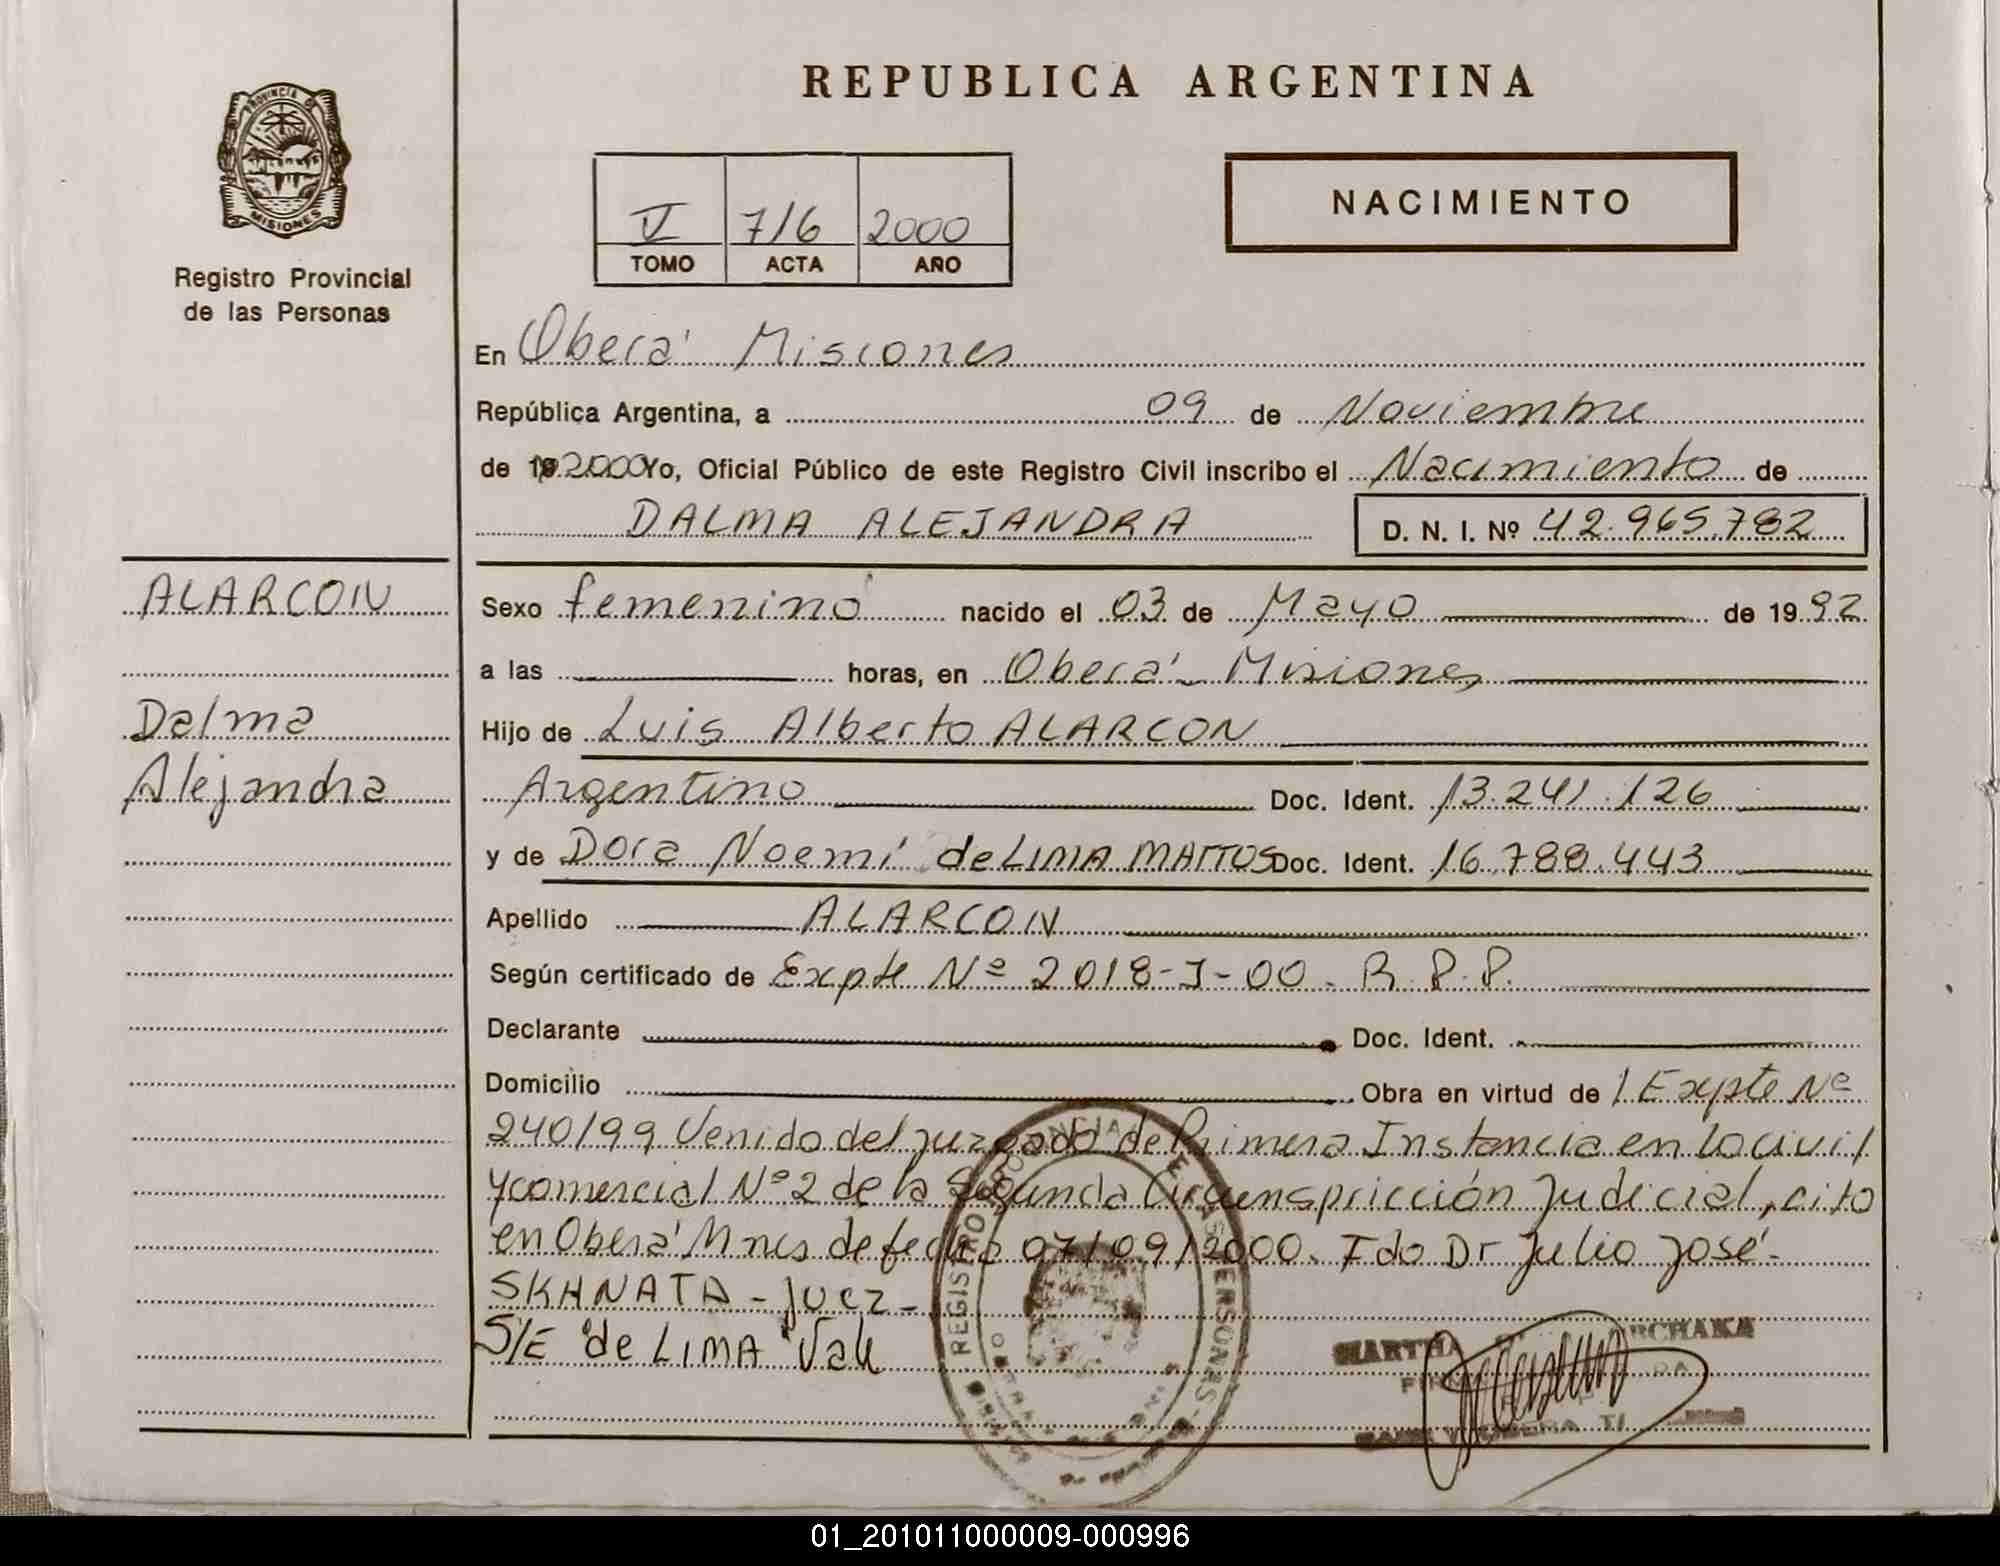 REPUBLICA ARGENTINA
PROVINCIA DE
MISIONES
Registro Provincial
de las Personas
V 716 2000
TOMO ACTA AÑO
NACIMIENTO
En Oberá Misiones
República Argentina, a 09 de Noviembre
de 19 2000 Yo, Oficial Público de este Registro Civil inscribo el Nacimiento de
DALMA ALEJANDRA D. N. I. Nº 42.965.782
ALARCON
Dalma
Alejandra
Sexo femenino nacido el 03 de Mayo de 19 92
a las horas, en Oberá Misiones
Hijo de Luis Alberto ALARCON
Argentino Doc. Ident. 13.241.126
y de Dora Noemí de LIMA MATTOS Doc. Ident. 16.788.443
Apellido ALARCON
Según certificado de Expte Nº 2018-J-00. R.P.P.
Declarante Doc. Ident.
Domicilio Obra en virtud de / Expte Nº
240/99 Venido del juzgado de Primera Instancia en lo civil
y comercial Nº 2 de la Segunda Circunspricción Judicial, cito
en Oberá Mnes de fecha 07/09/2000. Fdo Dr Julio José
SKANATA - Juez -
S/E "de LIMA" Vale
REGISTRO PROVINCIAL DE LAS PERSONAS
MARTHA
01_201011000009-000996